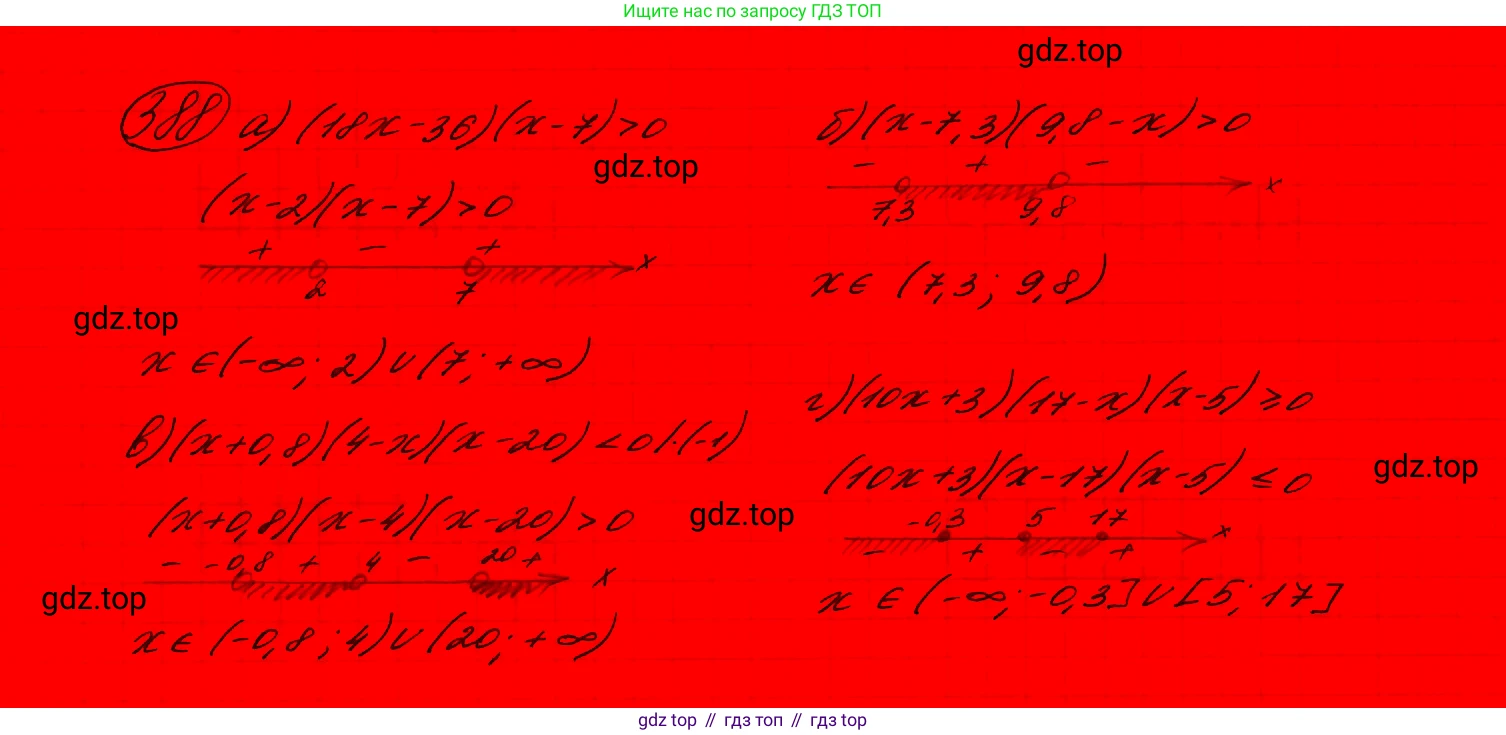 Ищите нас по запросу ГДЗ ТОП
gdz.top
388 а) (18x-36)(x-7)>0
gdz.top
(x-2)(x-7)>0
+ − + x
2 7
gdz.top
x∈(-∞; 2)∪(7; +∞)
б) (x-7,3)(9,8-x)>0
− + − x
7,3 9,8
x∈ (7,3; 9,8)
в) (x+0,8)(4-x)(x-20)<0 |·(-1)
(x+0,8)(x-4)(x-20)>0
gdz.top
− -0,8 + 4 − 20 + x
gdz.top
x∈(-0,8; 4)∪(20; +∞)
г) (10x+3)(17-x)(x-5)≥0
(10x+3)(x-17)(x-5)≤0
gdz.top
-0,3 5 17 x
− + − +
x ∈ (-∞; -0,3]∪[5; 17]
gdz top // гдз топ // гдз top